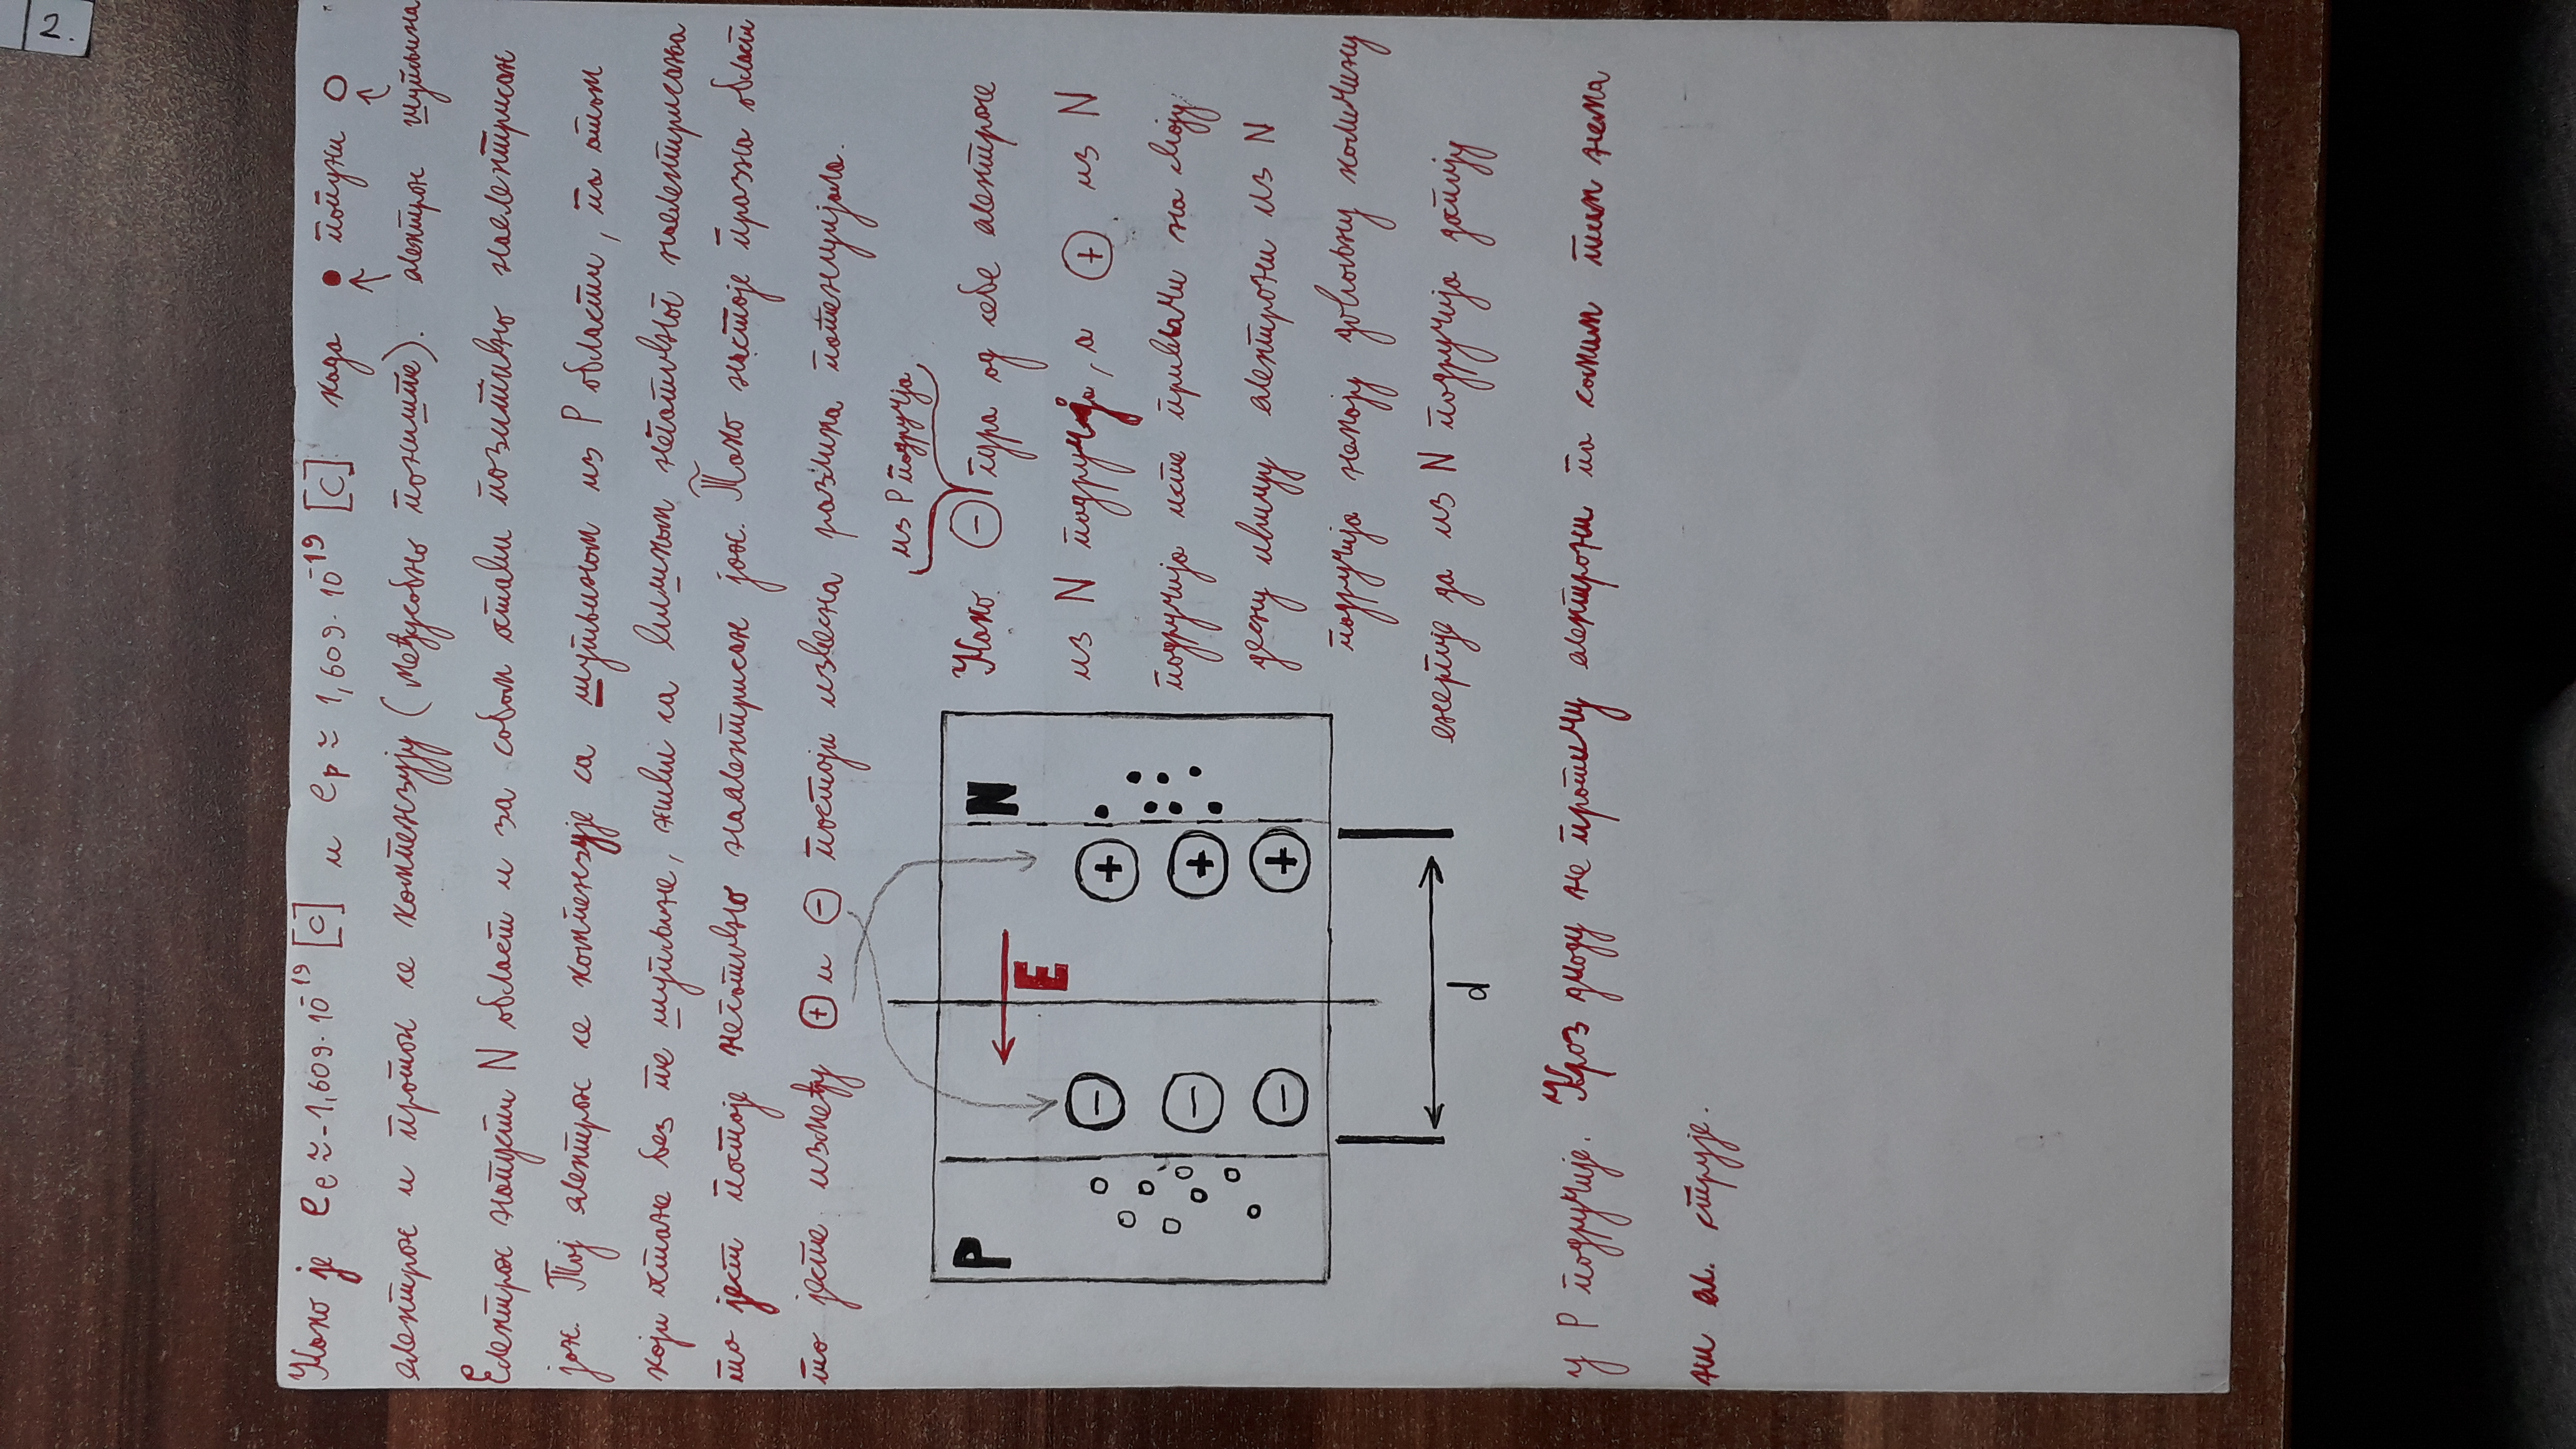 2.
Како је eₑ ≈ -1,609·10⁻¹⁹ [C] и eₚ ≈ 1,609·10⁻¹⁹ [C] када ● попуни ○
електрон и протон се компензују (међусобно пониште). електрон шупљина
Електрон напусти N област и за собом остави позитивно наелектрисан
јон. Тај електрон се компензује са шупљином из P области, па атом
који остане без те шупљине, живи са вишком негативног наелектрисања
то јест постаје негативно наелектрисан јон. Тако настаје празна област
то јесте између ⊕ и ⊖ постоји извесна разлика потенцијала.
из P подручја
P N
E
Како ⊖ гура од себе електроне
из N подручја, а ⊕ из N
подручија исте привлачи на своју
десну ивицу електрони из N
подручија немају довољну количину
енергије да из N подручија доспију
d
у P подручије. Кроз диоду не протичу електрони па самим тим нема
ни ел. струје.